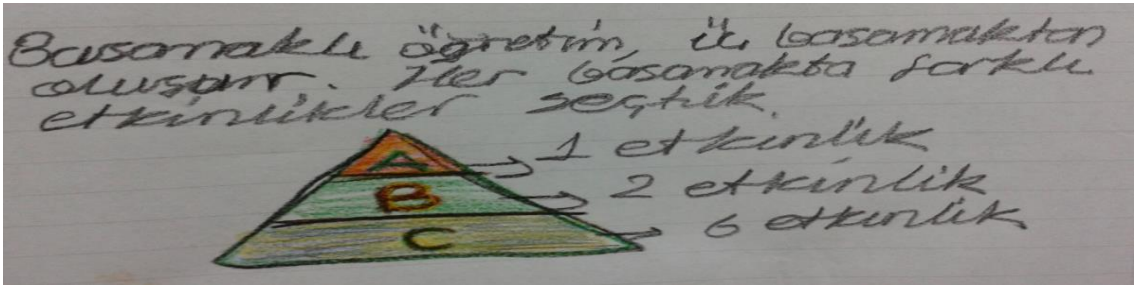 Basamaklı öğretim, üç basamaktan
oluşur. Her basamakta farklı
etkinlikler seçtik.
A → 1 etkinlik
B → 2 etkinlik
C → 6 etkinlik